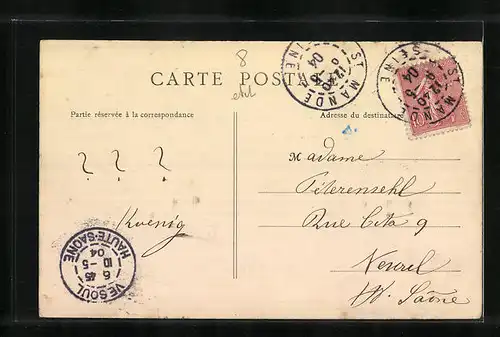 8
CARTE POSTALE
ST MANDÉ
SEINE
12 40
9 -5
04
ST MANDÉ
SEINE
12 40
9 -5
04
Partie réservée à la correspondance
Adresse du destinataire
? ? ?
Koenig
Madame
Rue Cita 9
Vesoul
Hte Saône
VESOUL
HAUTE-SAONE
6 45
10 -5
04